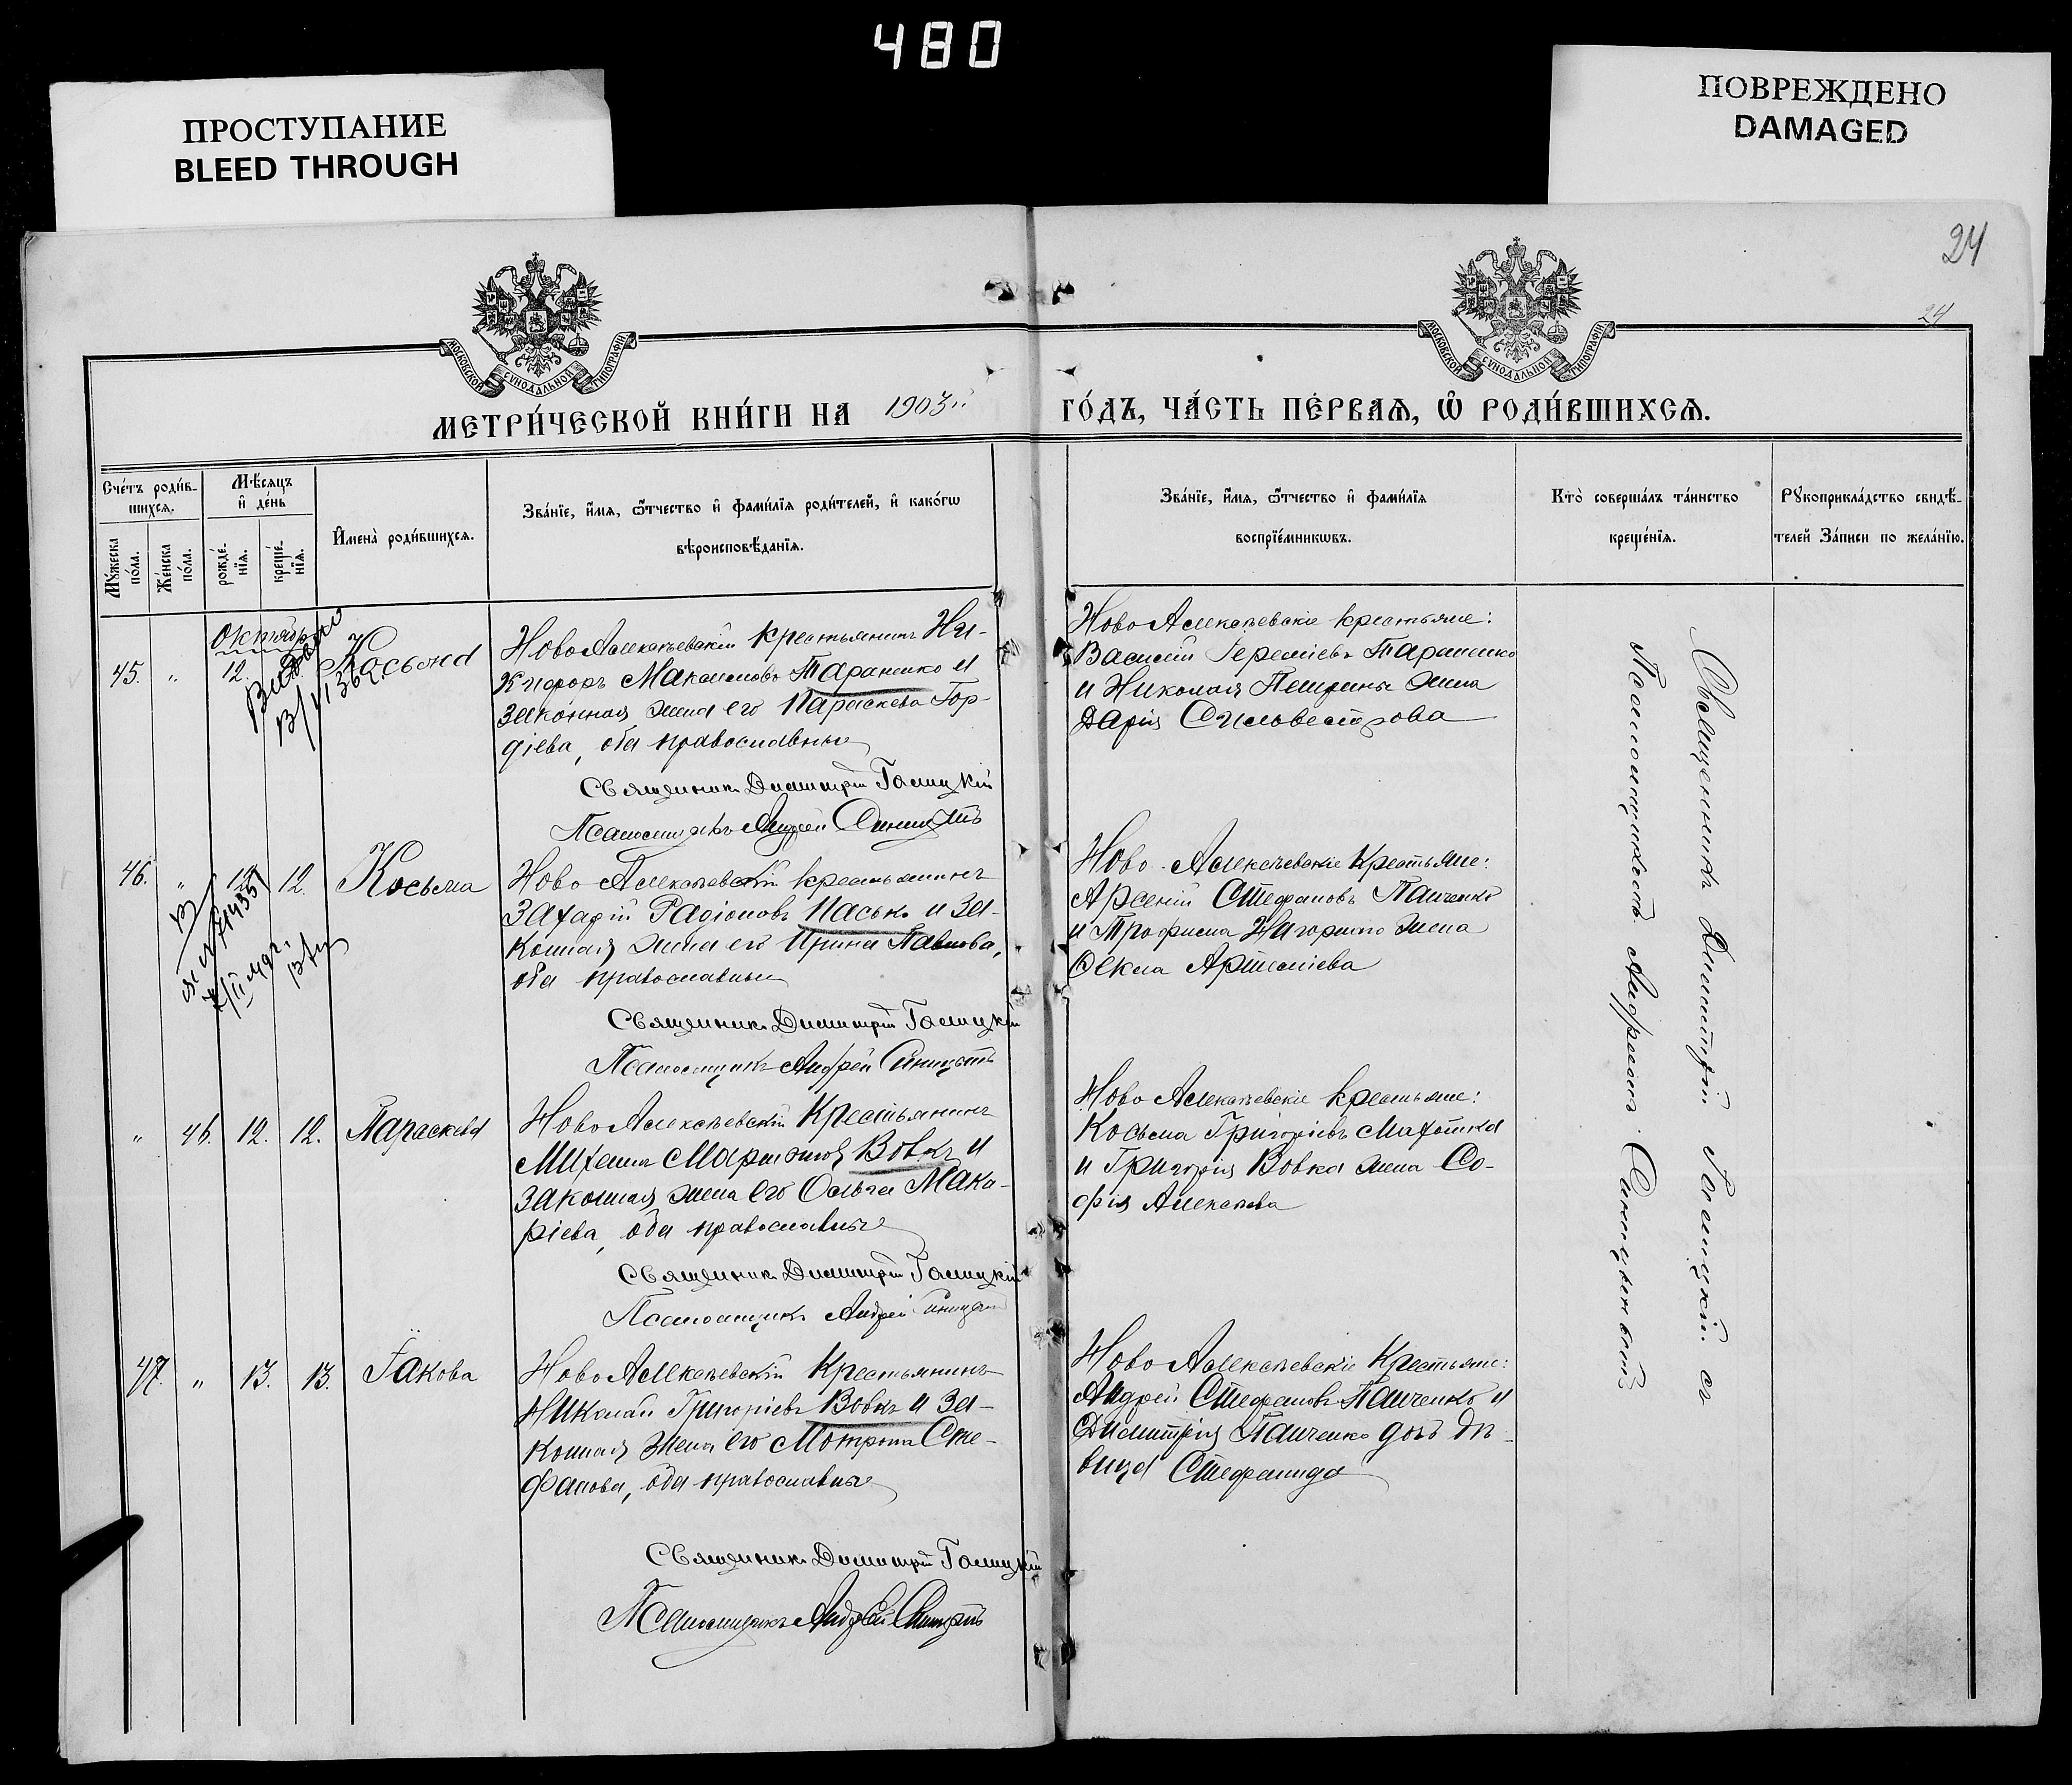 480
ПРОСТУПАНИЕ
BLEED THROUGH
ПОВРЕЖДЕНО
DAMAGED
24
24
МОСКОВСКОЙ СѴНОДАЛЬНОЙ ТИПОГРАФІИ
МОСКОВСКОЙ СѴНОДАЛЬНОЙ ТИПОГРАФІИ
МЕТРИ́ЧЕСКОЙ КНИ́ГИ НА 1903й ГО́ДЪ, ЧА́СТЬ ПЕ́РВАѦ, Ѡ҆ РОДИ́ВШИХСѦ.
Сче́тъ роди́в-
шихсѧ.
Мꙋ́жеска по́ла.
Же́нска по́ла.
Мѣ́сѧцъ и҆ де́нь
рожде́-нїѧ.
креще́-нїѧ.
И҆мена̀ роди́вшихсѧ.
Зва́нїе, и҆́мѧ, ѻ҆́тчество и҆ фамилі́ѧ роди́телей, и҆ како́гѡ
вѣроисповѣ́данїѧ.
Зва́нїе, и҆́мѧ, ѻ҆́тчество и҆ фами́лїѧ
воспрїе́мникѡвъ.
Кто̀ соверша́лъ та́инство
креще́нїѧ.
Рꙋкоприкла́дство свидѣ́-
телей За́писи по жела́нїю.
Октябрь
45. " 12. Косьма
Выдано
Ново Алексѣевскій крестьянинъ Ни-
кифоръ Максимовъ Тараненко и
законная жена его Параскева Гор-
діева, оба православные
Священникъ Димитрій Галицкій
Псаломщикъ Андрей
Ново Алексѣевскіе крестьяне:
Василій Іереміевъ Тараненко
и Николая жена
Дарія Сильвестрова
46. " 12. 12. Косьма
Ново Алексѣевскій крестьянинъ
Захарій Радіоновъ Пасько и За-
конная жена его Ирина Павлова,
оба православные
Священникъ Димитрій Галицкій
Псаломщикъ Андрей
Ново Алексѣевскіе Крестьяне:
Арсеній Стефановъ Панченко
и Трофима жена
Ѳекла Артеміева
" 46. 12. 12. Параскева
Ново Алексѣевскій Крестьянинъ
Михаилъ Вовкъ и
законная жена его Ольга Мака-
ріева, оба православные
Священникъ Димитрій Галицкій
Псаломщикъ Андрей
Ново Алексѣевскіе крестьяне:
Косьма Григоріевъ
и Григорія Вовка жена Со-
фія Алексѣева
47. " 13. 13. Іакова
Ново Алексѣевскій Крестьянинъ
Николай Григоріевъ Вовкъ и За-
конная жена его Мотрона Сте-
фанова, оба православные
Священникъ Димитрій Галицкій
Псаломщикъ Андрей
Ново Алексѣевскіе Крестьяне:
Андрей Стефановъ Панченко и
Димитрія Панченко дочь дѣ-
вица Стефанида
Священникъ Димитрій Галицкій съ
Псаломщикомъ Андреемъ